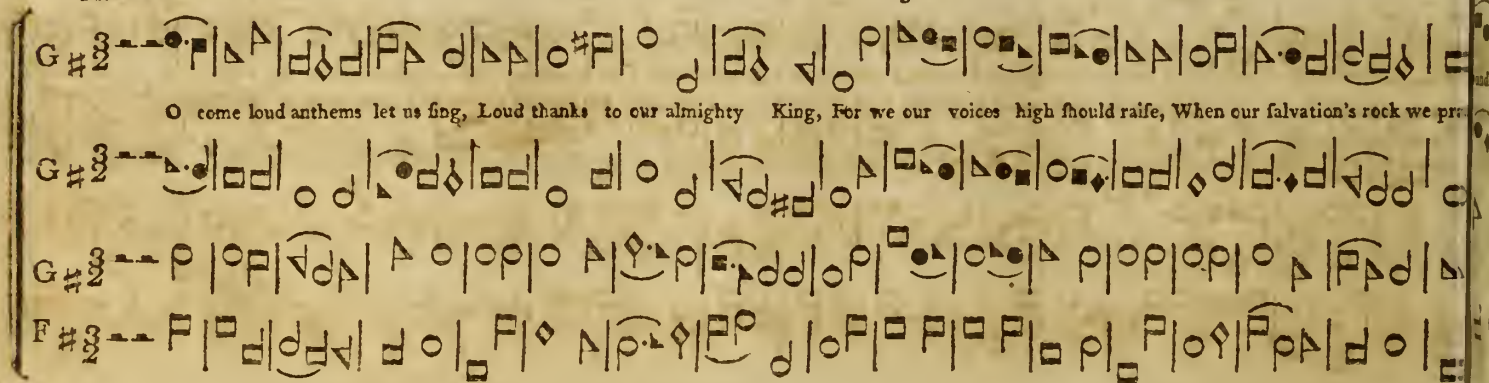 G # 3/2
O come loud anthems let us ſing, Loud thanks to our almighty King, For we our voices high ſhould raiſe, When our ſalvation's rock we
G # 3/2
G # 3/2
F # 3/2